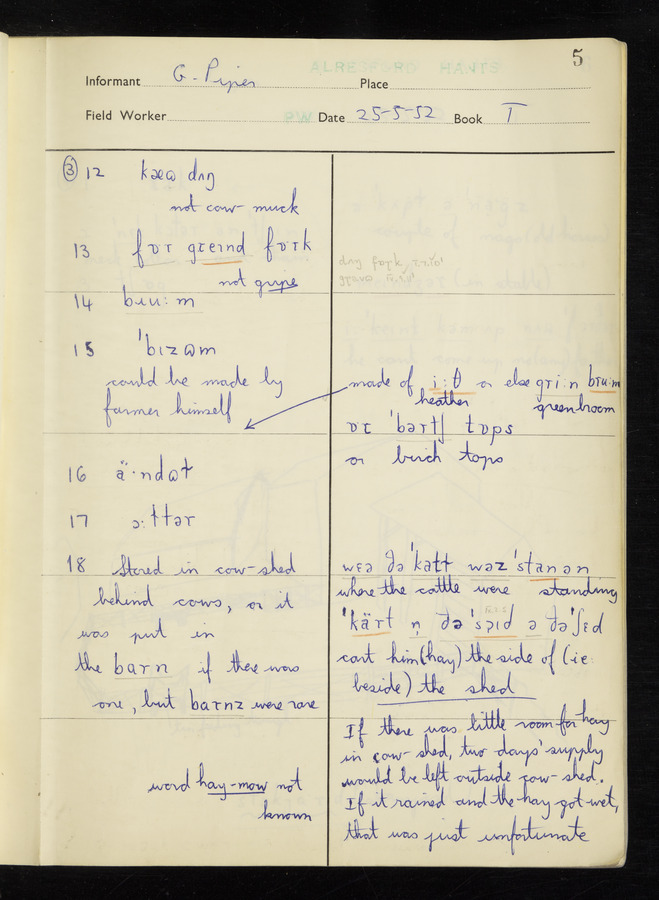 5
ALRESFORD HANTS
Informant G. Piper Place
Field Worker PW Date 25-5-52 Book I
③ 12 kæɷ dʌŋ
not cow-muck
13 fɒr greɪnd fɒrk
not gripe
dʌŋ fɒrk
14 bɪuːm
15 ˈbɪzəm
could be made by
farmer himself
made of iːθ or else griːn brɪuːm
heather greenbroom
ɒr ˈbərtʃ tɒps
or birch tops
16 ä·ndɷɫ
17 ɔːttər
18 Stored in cow-shed
behind cows, or it
was put in
the barn if there was
one, but barnz were rare
word hay-mow not
known
wɛə ðə ˈkætɫ wəz ˈstanən
where the cattle were standing
ˈkärt n̩ ðə ˈsəɪd ə ðə ˈʃɛd
cart him (hay) the side of (ie:
beside) the shed
If there was little room for hay
in cow-shed, two days' supply
would be left outside cow-shed.
If it rained and the hay got wet,
that was just unfortunate